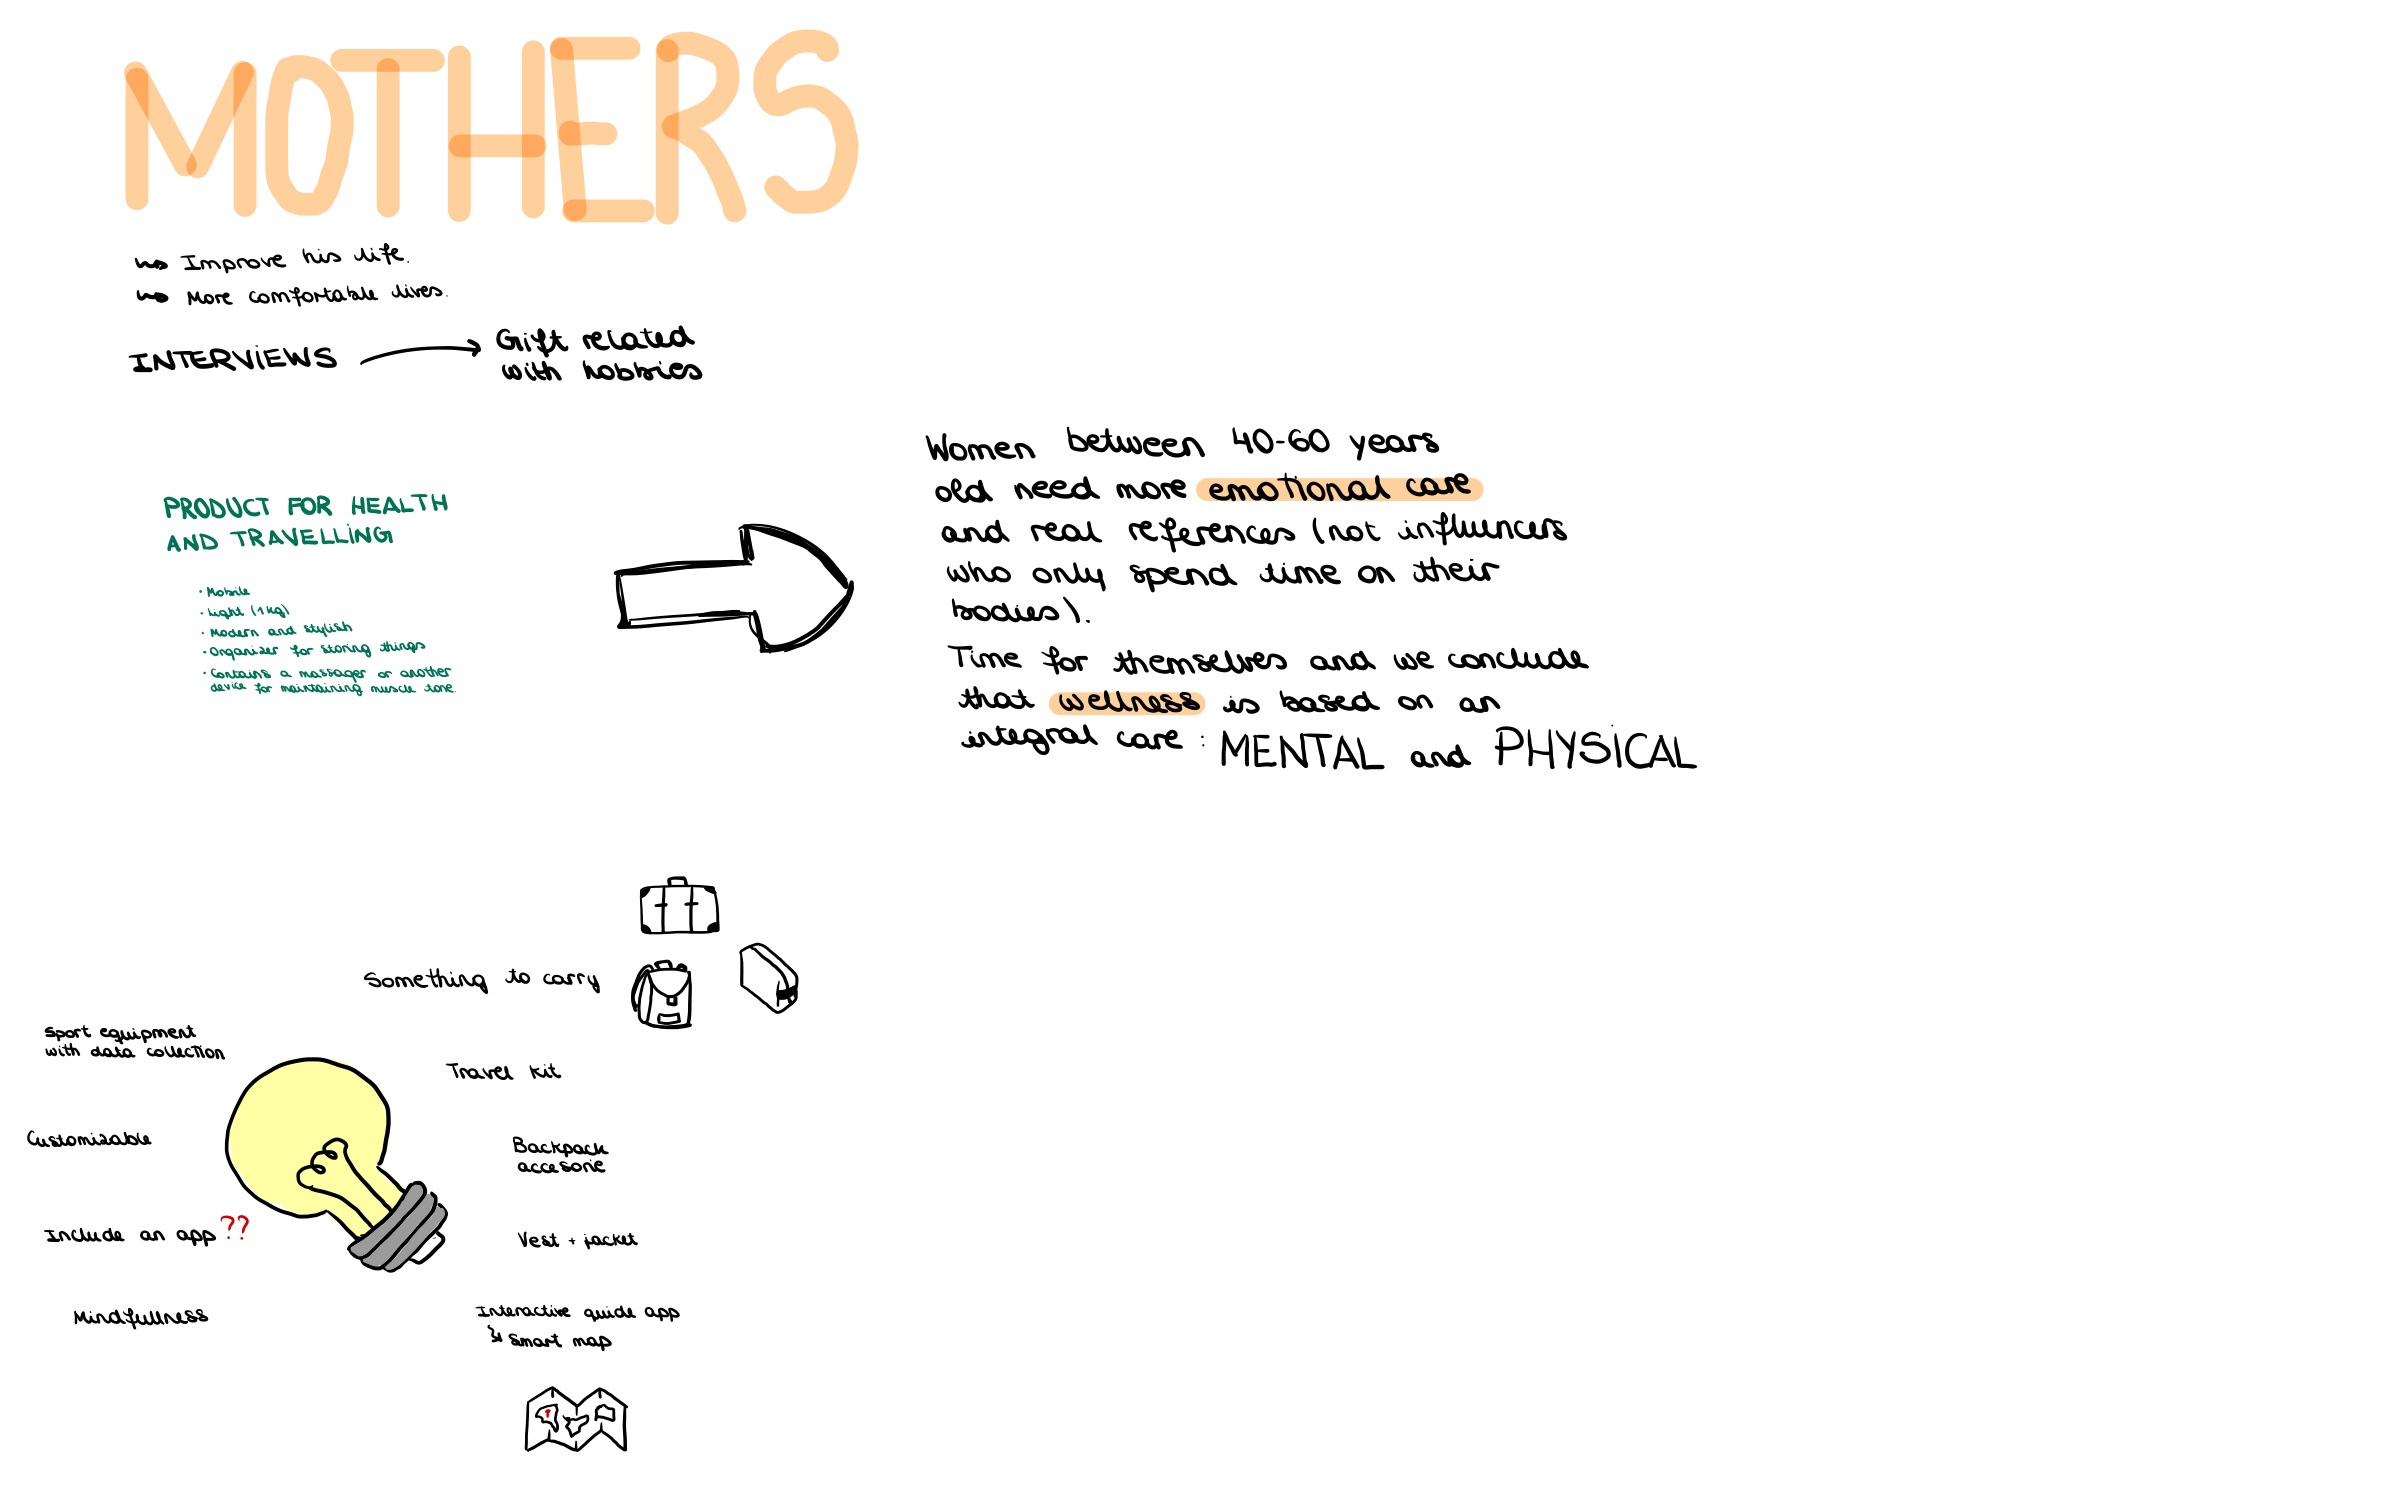 MOTHERS
Improve his life.
More comfortable lives.
INTERVIEWS
Gift related
with hobbies
PRODUCT FOR HEALTH
AND TRAVELLING
· Mobile
· Light (1 kg)
· Modern and stylish
· Organizer for storing things
· Contains a massager or another
device for maintaining muscle tone.
Women between 40-60 years
old need more emotional care
and real references (not influencers
who only spend time on their
bodies).
Time for themselves and we conclude
that wellness is based on an
integral care : MENTAL and PHYSICAL
Something to carry
Sport equipment
with data collection
Travel kit
Customizable
Backpack
accesorie
Include an app ??
Vest + jacket
Mindfullness
Interactive guide app
Smart map